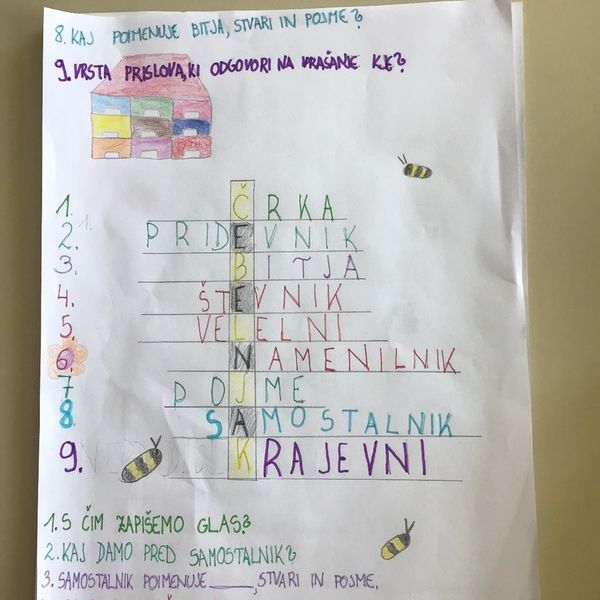 8. KAJ POIMENUJE BITJA, STVARI IN POJME?
9. VRSTA PRISLOVA, KI ODGOVORI NA VRAŠANJE KJE?
1. ČRKA
2. PRIDEVNIK
3. BITJA
4. ŠTEVNIK
5. VELELNI
6. NAMENILNIK
7 POJME
8. SAMOSTALNIK
9. KRAJEVNI
1. S ČIM ZAPIŠEMO GLAS?
2. KAJ DAMO PRED SAMOSTALNIK?
3. SAMOSTALNIK POIMENUJE_____, STVARI IN POJME.